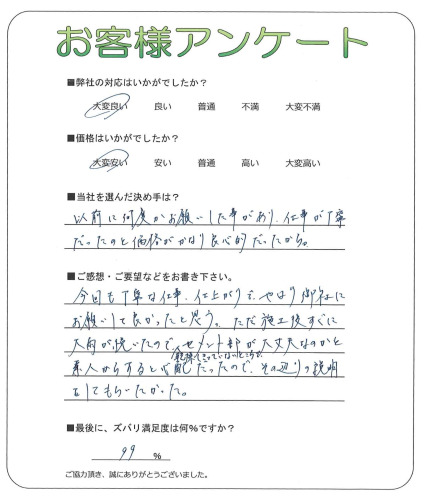 お客様アンケート
■弊社の対応はいかがでしたか？
大変良い 良い 普通 不満 大変不満
■価格はいかがでしたか？
大変安い 安い 普通 高い 大変高い
■当社を選んだ決め手は？
以前に何度かお願いした事があり、仕事が丁寧
だったのと価格がかなり良心的だったから。
■ご感想・ご要望などをお書き下さい。
今回も丁寧な仕事、仕上がりで、やはり御社に
お願いして良かったと思う。ただ施工後すぐに
大雨が続いたので、セメント部が大丈夫なのかと
乾燥しきっていないところが、
素人からすると心配だったので、その辺りの説明
をしてもらいたかった。
■最後に、ズバリ満足度は何％ですか？
99 ％
ご協力頂き、誠にありがとうございました。